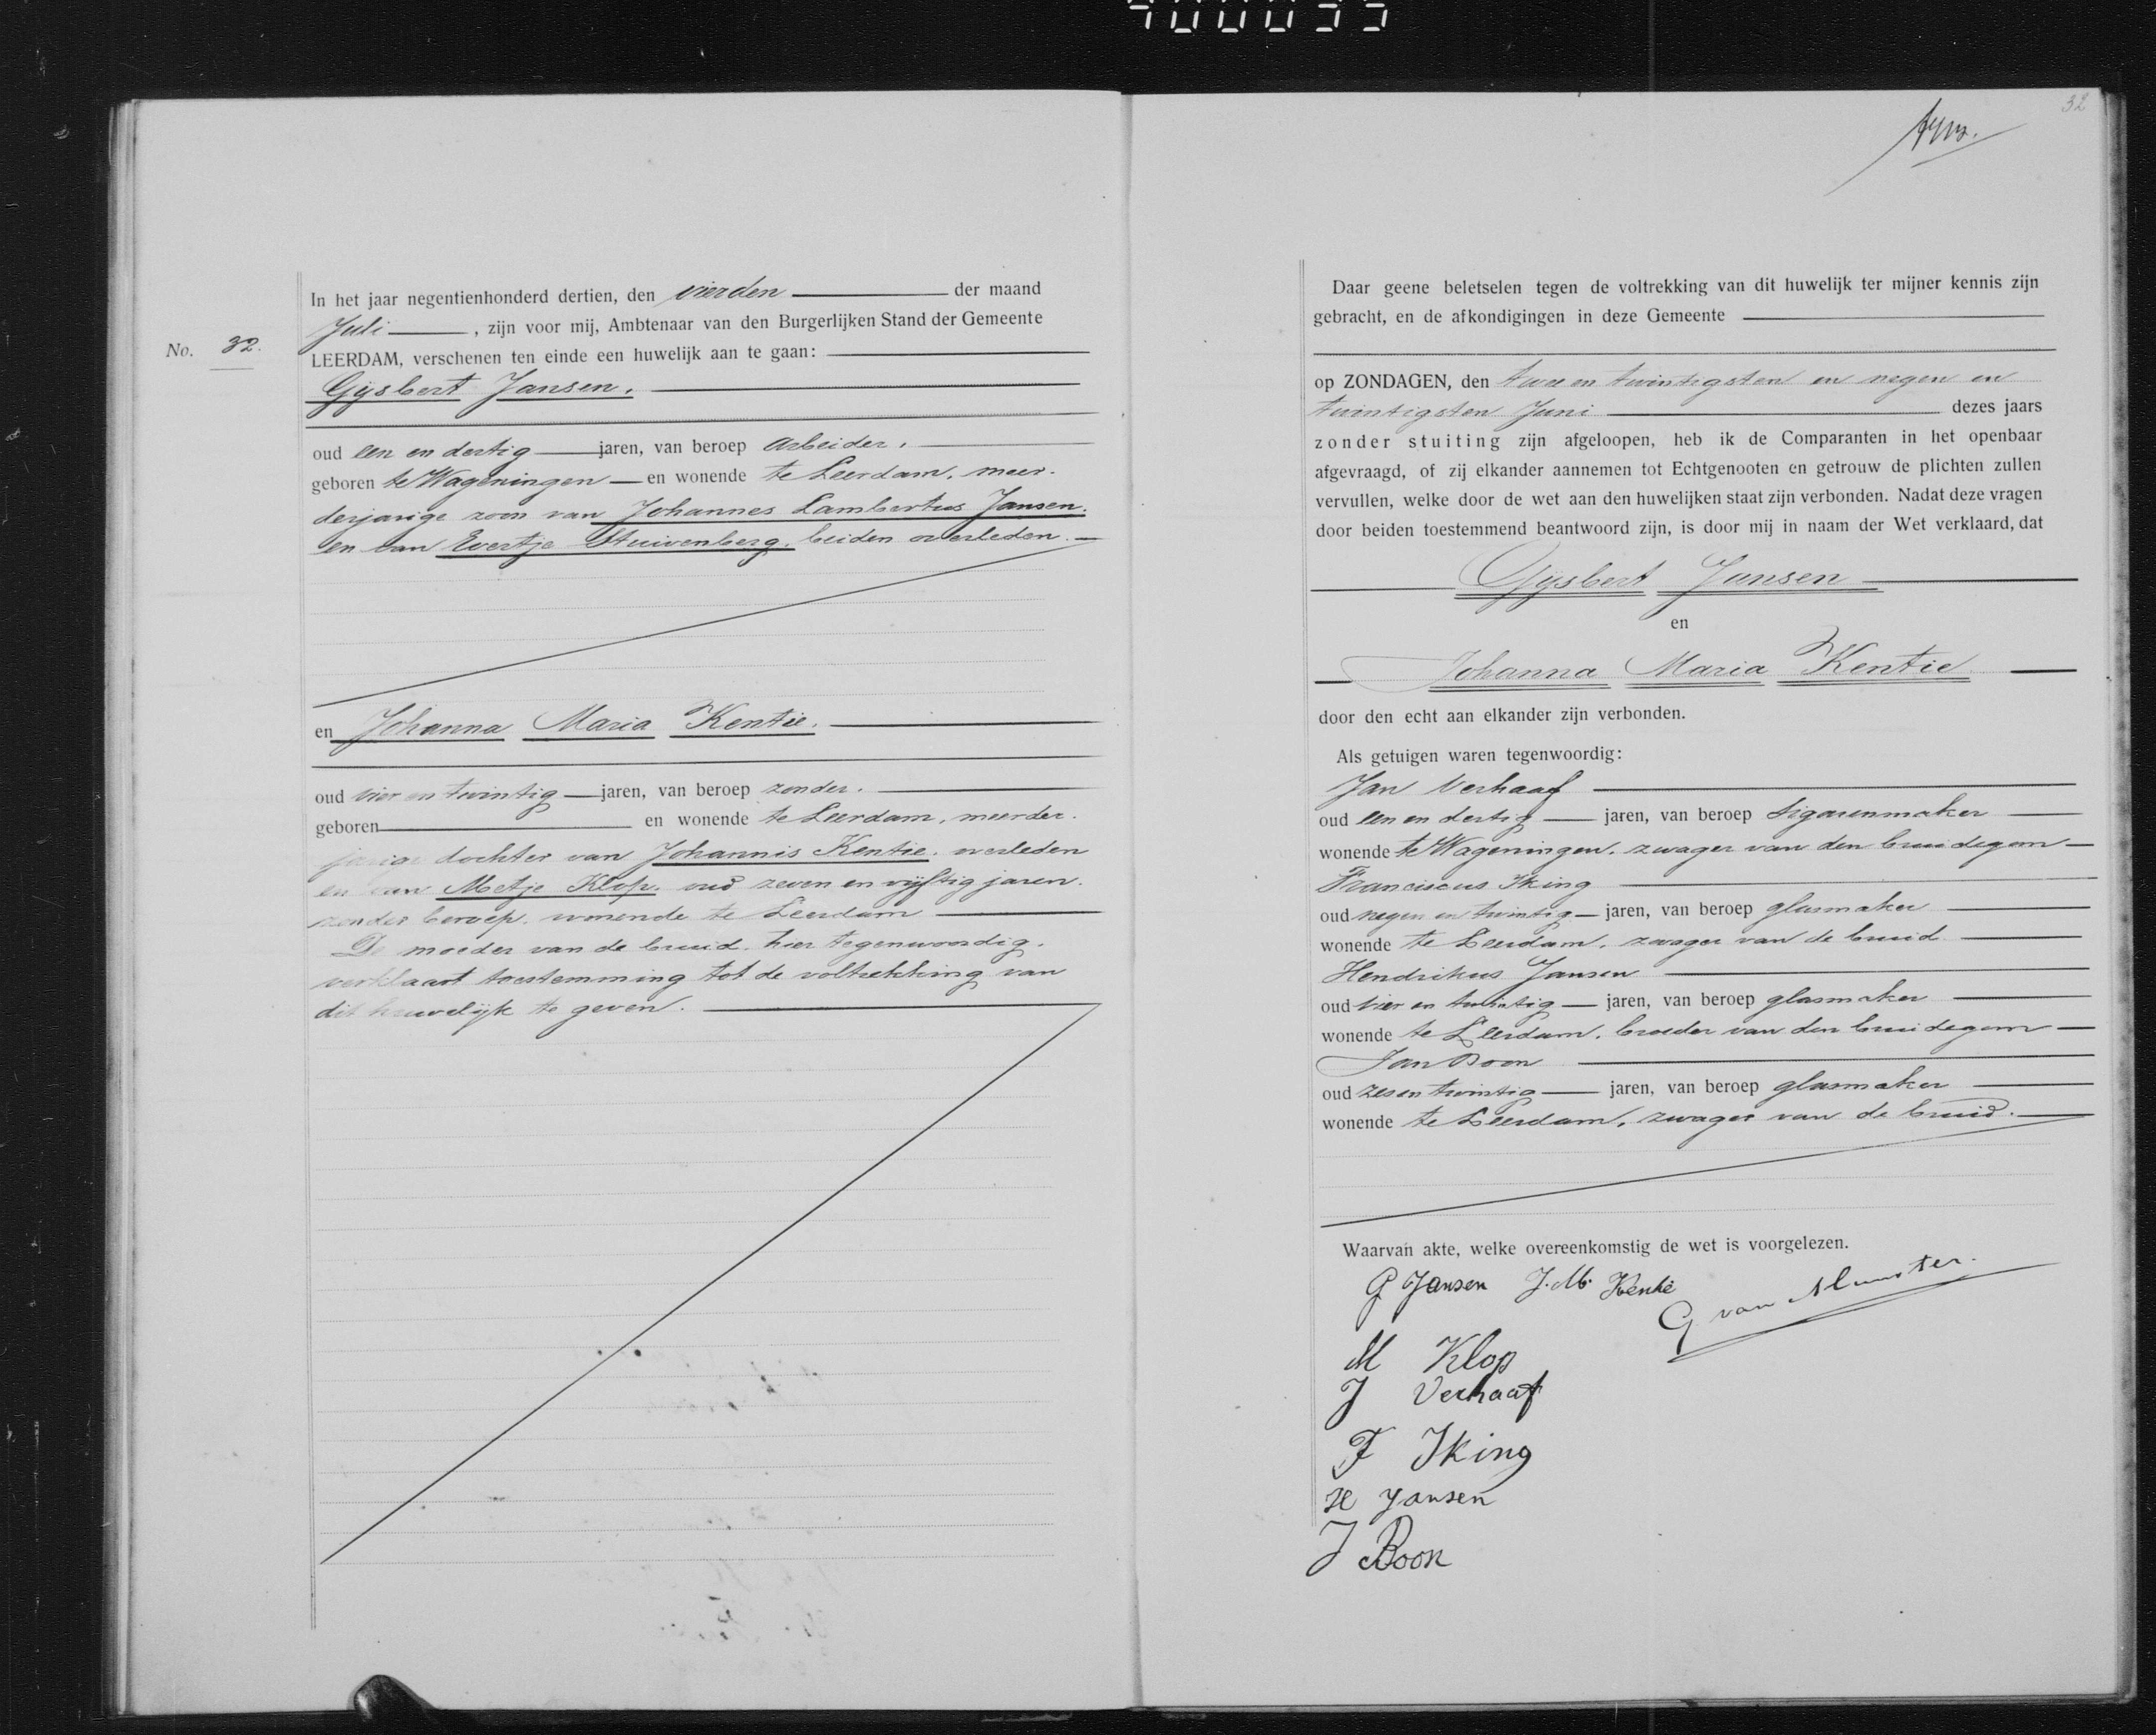 32
No. 32.
In het jaar negentienhonderd dertien, den vierden der maand
Juli, zijn voor mij, Ambtenaar van den Burgerlijken Stand der Gemeente
LEERDAM, verschenen ten einde een huwelijk aan te gaan:
Gijsbert Jansen,
oud een en dertig jaren, van beroep arbeider,
geboren te Wageningen en wonende te Leerdam, meer-
derjarige zoon van Johannes Lambertus Jansen
en van Evertje Stuivenberg, beiden overleden.
en Johanna Maria Kentie,
oud vier en twintig jaren, van beroep zonder,
geboren en wonende te Leerdam, meerder-
jarige dochter van Johannis Kentie, overleden
en van Metje Klop, oud zeven en vijftig jaren,
zonder beroep, wonende te Leerdam
De moeder van de bruid, hier tegenwoordig,
verklaart toestemming tot de voltrekking van
dit huwelijk te geven.
Daar geene beletselen tegen de voltrekking van dit huwelijk ter mijner kennis zijn
gebracht, en de afkondigingen in deze Gemeente
op ZONDAGEN, den twee en twintigsten en negen en
twintigsten Juni dezes jaars
zonder stuiting zijn afgeloopen, heb ik de Comparanten in het openbaar
afgevraagd, of zij elkander aannemen tot Echtgenooten en getrouw de plichten zullen
vervullen, welke door de wet aan den huwelijken staat zijn verbonden. Nadat deze vragen
door beiden toestemmend beantwoord zijn, is door mij in naam der Wet verklaard, dat
Gijsbert Jansen
en
Johanna Maria Kentie
door den echt aan elkander zijn verbonden.
Als getuigen waren tegenwoordig:
Jan Verhaaf
oud een en dertig jaren, van beroep sigarenmaker
wonende te Wageningen, zwager van den bruidegom
Franciscus Iking
oud negen en twintig jaren, van beroep glasmaker
wonende te Leerdam, zwager van de bruid
Hendrikus Jansen
oud vier en twintig jaren, van beroep glasmaker
wonende te Leerdam, broeder van den bruidegom
Jan Boon
oud zes en twintig jaren, van beroep glasmaker
wonende te Leerdam, zwager van de bruid.
Waarvan akte, welke overeenkomstig de wet is voorgelezen.
G Jansen J. M. Kentie
G van Munster.
M Klop
J Verhaaf
F Iking
H Jansen
J Boon